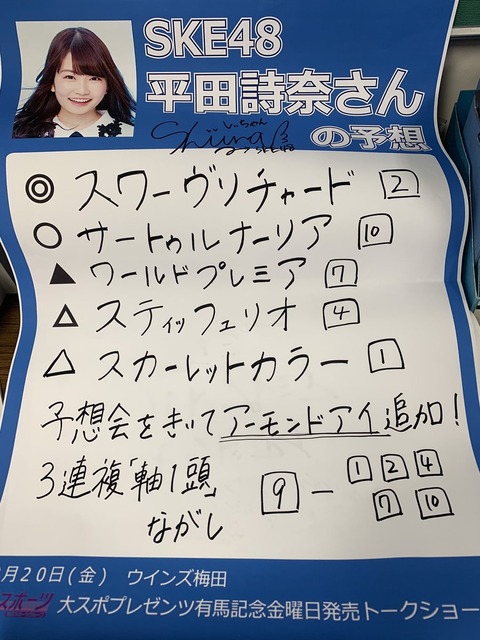 SKE48
平田詩奈さん
の予想
◎ スワーヴリチャード 2
○ サートゥルナーリア 10
▲ ワールドプレミア 7
△ スティッフェリオ 4
△ スカーレットカラー 1
予想会をきいてアーモンドアイ追加!
3連複「軸1頭」 9 - 1 2 4
ながし 7 10
月20日(金) ウインズ梅田
スポーツ 大スポプレゼンツ有馬記念金曜日発売トークショー